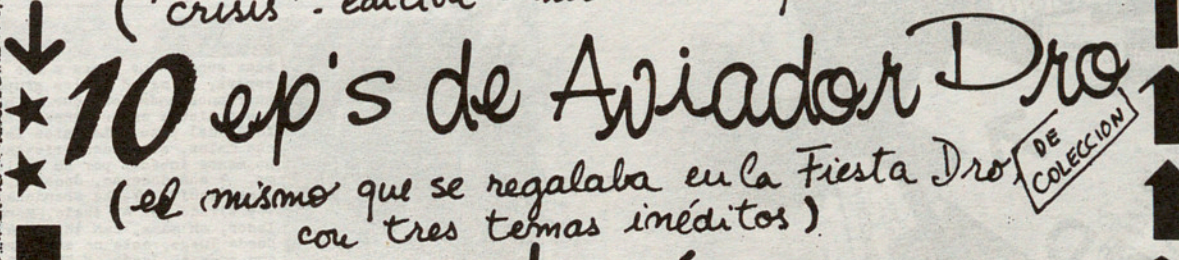 ("crisis".
10 ep's de Aviador Dro
DE COLECCION
(el mismo que se regalaba en la Fiesta Dro,
con tres temas inéditos)